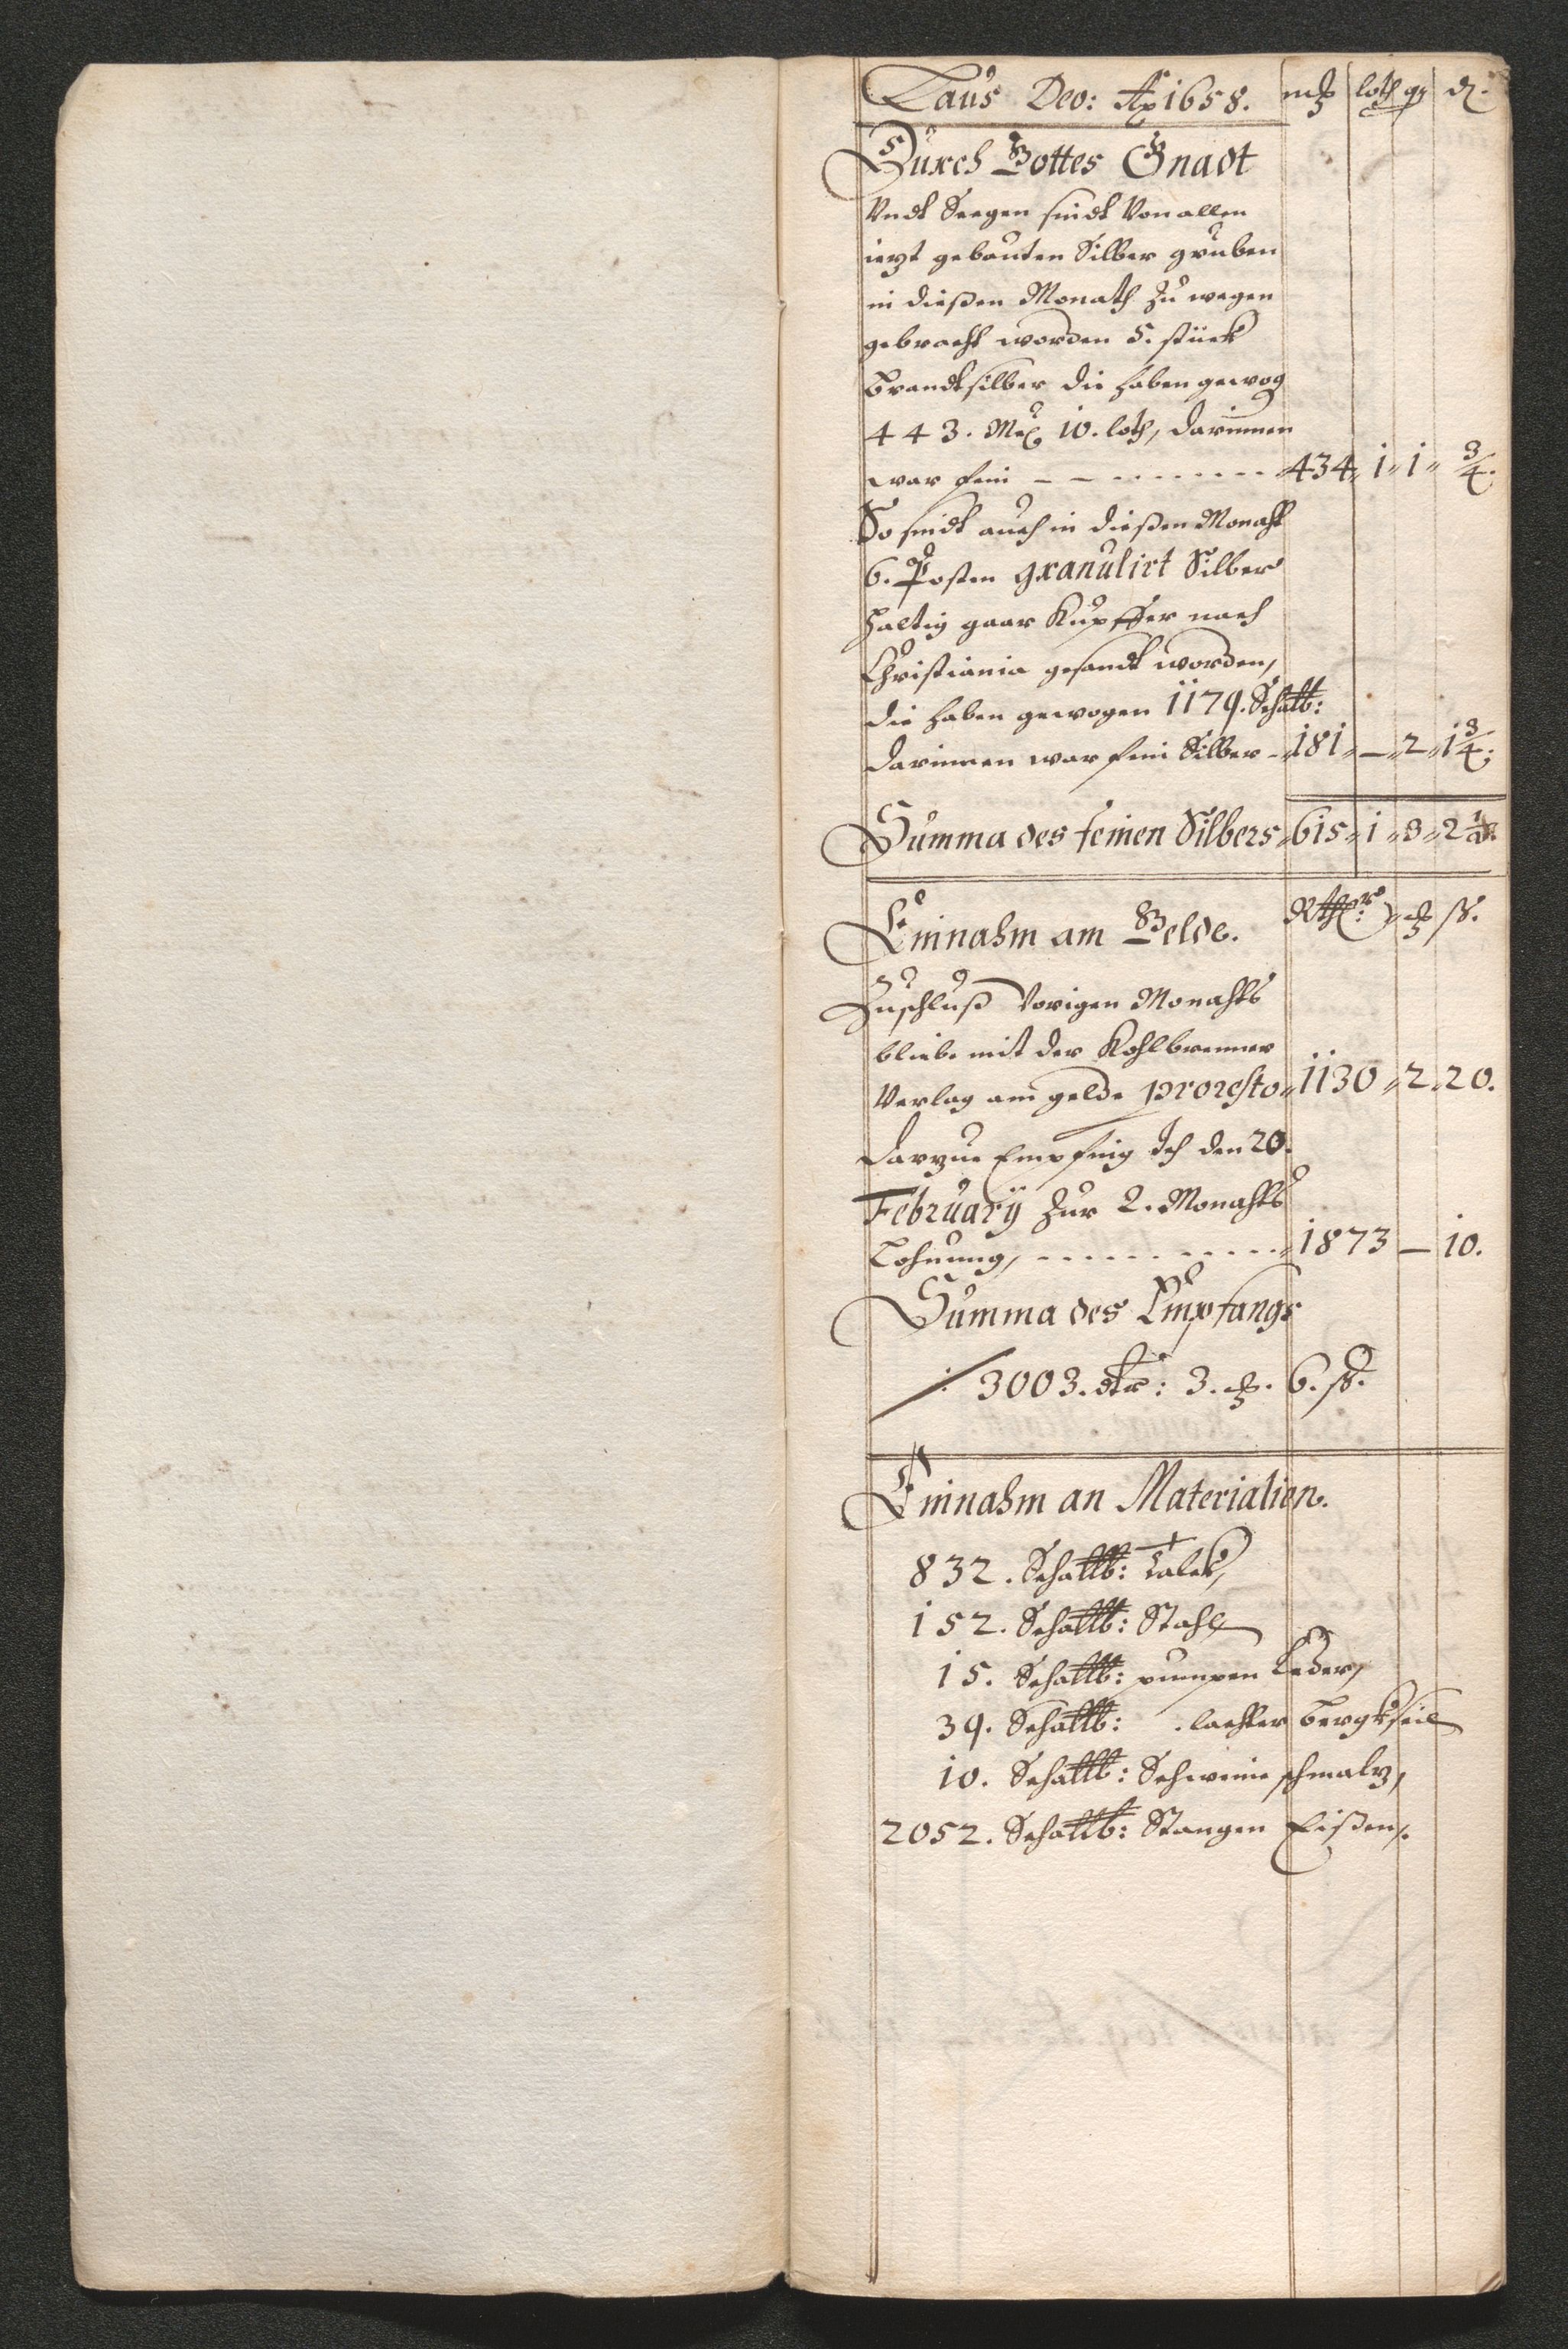 Laus Deo: Ao 1658. mck loth q d.
Durch Gottes Gnadt
Vndt Seegen sindt Von allen
iezt gebauten Silber gruben
in dießen Monath zu wegen
gebracht worden 5. stück
brandtsilber die haben gewog
443. Mck 10. loth, darinnen
war fein - - - - - - - - - 434 " 1 " 1 " 3/4.
So sindt auch in dießen Monaht
6. Posten granulirt Silber
haltig gaar Kupffer nach
Christiania gesandt worden,
die haben gewogen 1179. Schal℔:
darinnen war fein Silber - 181 " — " 2 " 1 3/4.
Summa des feinen Silbers " 615 " 1 " 3 " 2 1/2.
Einnahm am Gelde. Rthlr: mck ß.
Zuschluß Vorigen Monahts
bliebe mit der Kohlbrenner
Verlag am gelde pro resto " 1130 " 2 " 20.
darzue Empfing Ich den 20.
Februarÿ zur 2. Monahts
Lohnung, - - - - - - - - - 1873 — 10.
Summa des Empfangs
/: 3003. dlr: 3. mck. 6. ß.
Einnahm an Materialien.
832. Schal℔: Talck,
152. Schal℔: Stahl
15. Schal℔: pumpen Leder,
39. Schal℔: . lachter bergkseil
10. Schal℔: Schweine schmalz,
2052. Schal℔: Stangen Eißen,.